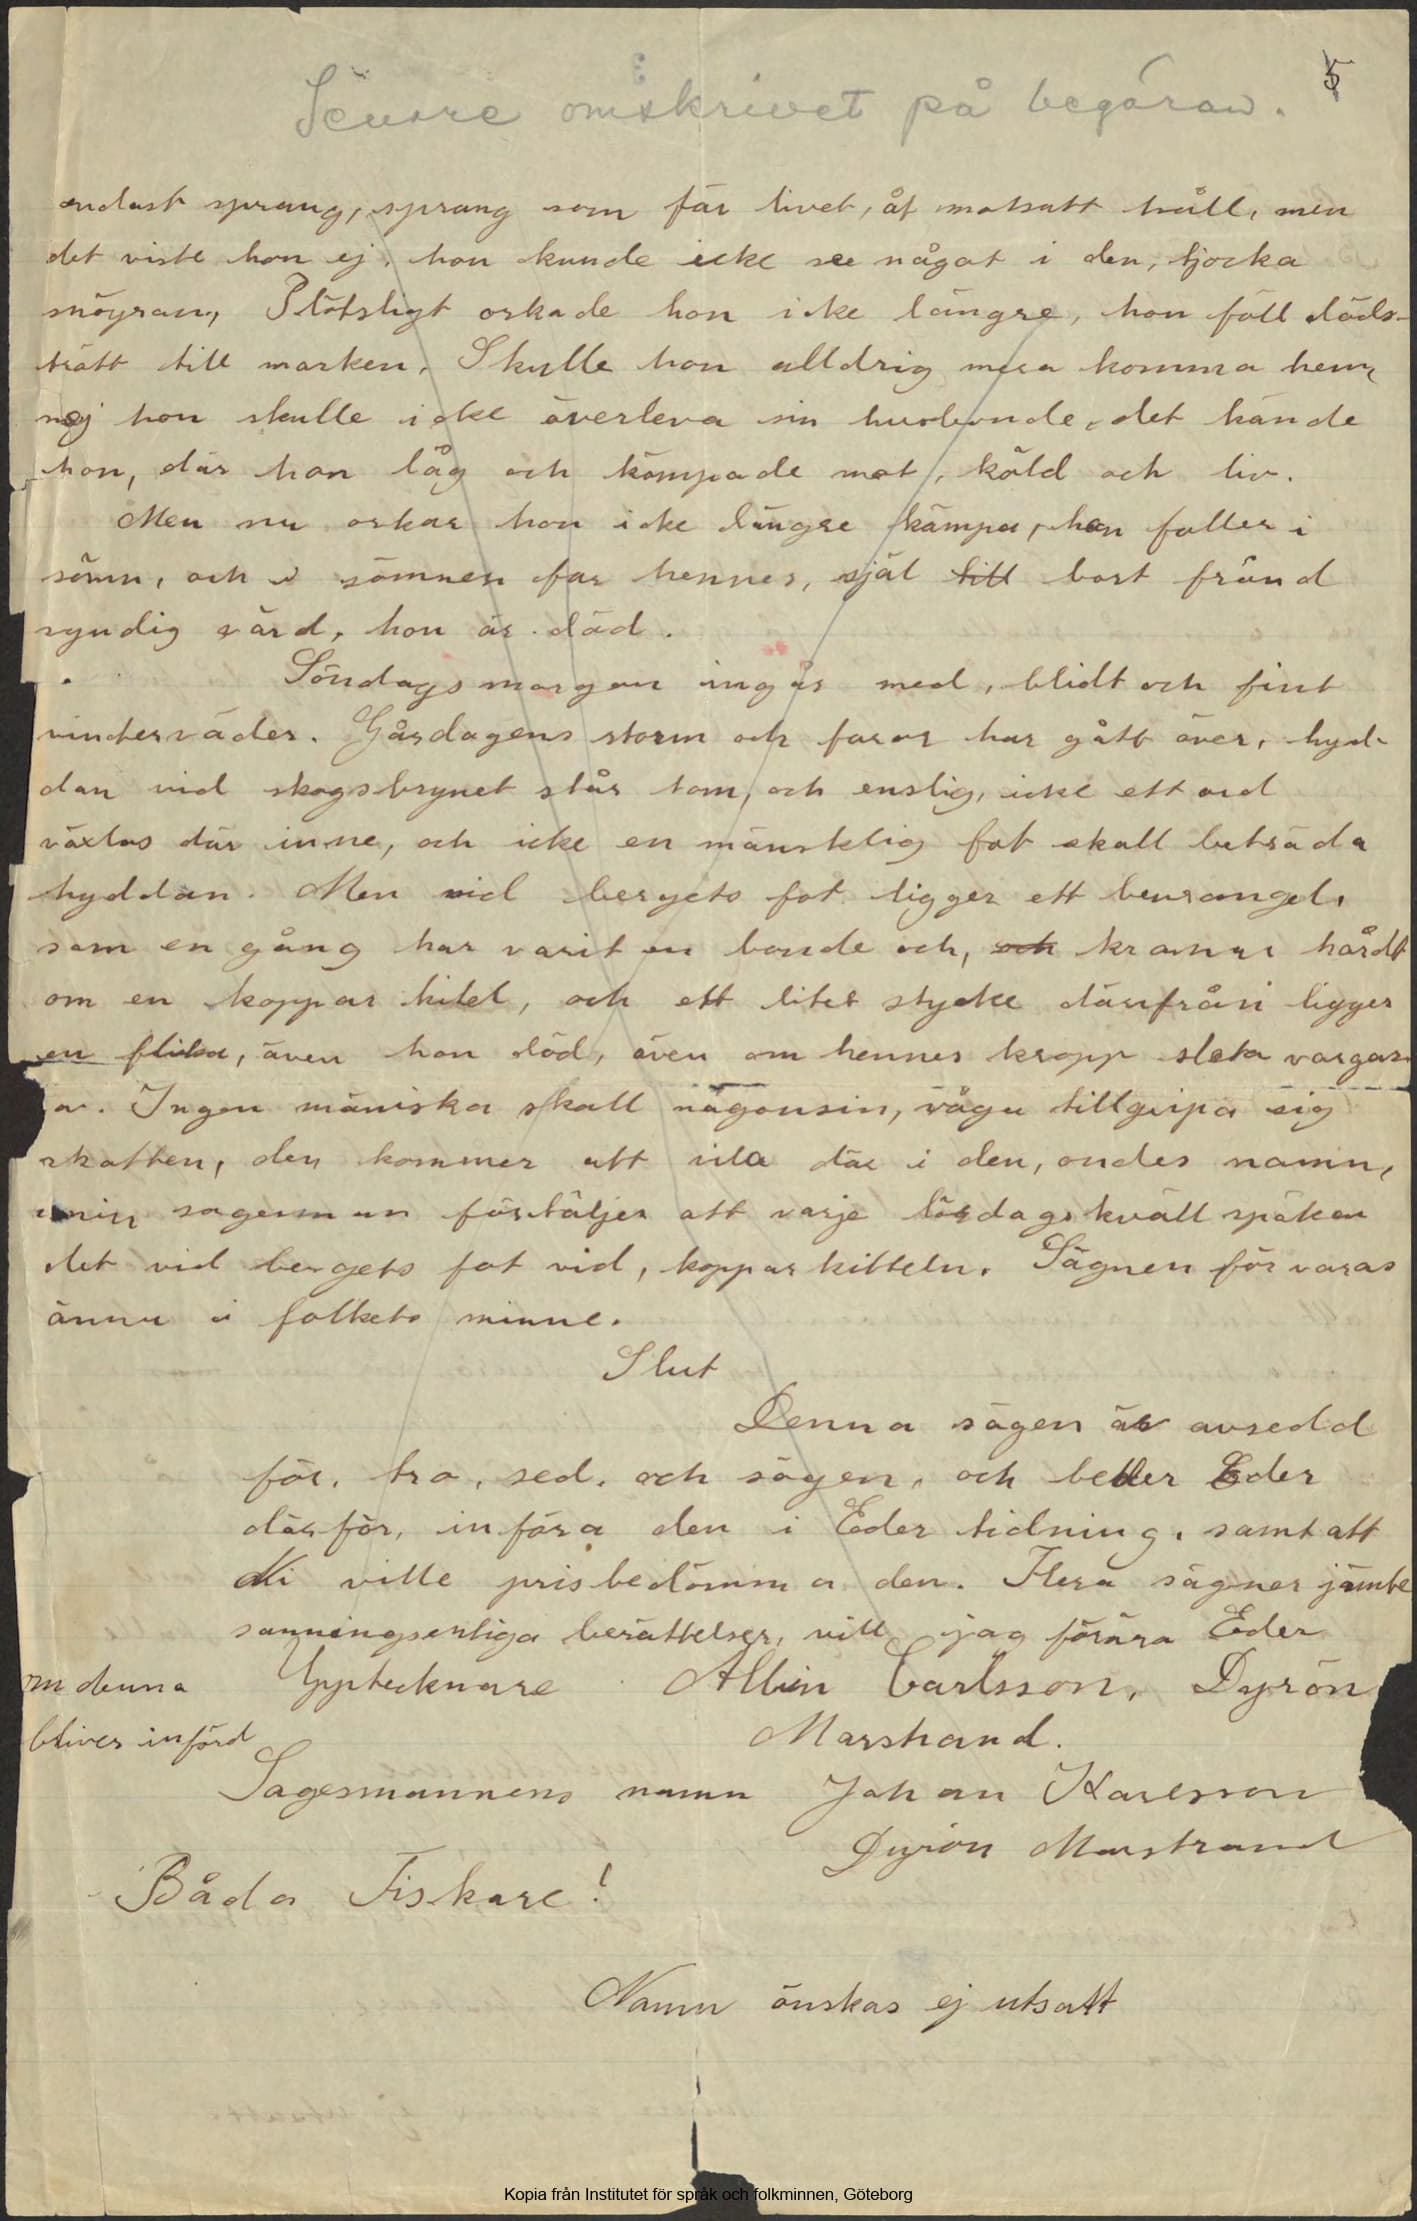 5
Senare omskrivet på begäran.
endast sprang, sprang som för livet, åt motsatt håll, men
det viste hon ej, hon kunde icke see något i den, tjocka
snöyran, Plötsligt orkade hon icke längre, hon föll döds-
trött till marken. Skulle hon alldrig mera komma hem,
nej hon skulle icke överleva sin husbonde, det kände
hon, där hon låg och kämpade mot, köld och liv.
Men nu orkar hon icke längre kämpa, hon faller i
sömn, och i sömnen far hennes, själ till bort från d
syndig värd, hon är död.
Söndagsmorgon ingår med, blidt och fint
vinterväder. Gårdagens storm och faror har gått över, hyd-
dan vid skogsbrynet står tom, och enslig, icke ett ord
växlas där inne, och icke en mänsklig fot skall beträda
hyddan. Men vid bergets fot ligger ett benrangel,
som en gång har varit en bonde och, och kramar hårdt
om en koppar kitel, och ett litet stycke därifrån ligger
en flicka, även hon död, även om hennes kropp sleta vargar-
a. Ingen mäniska skall någonsin, våga tillgripa sig
skatten, den kommer att vila där i den, ondes namn,
min sagesman förtäljer att varje lördags kväll spökar
det vid bergets fot vid, kopparkitteln. Sägnen förvaras
ännu i folkets minne.
Slut
Denna sägen är avsedd
för, tro, sed, och sägen, och beder Eder
därför, införa den i Eder tidning, samt att
Ni ville prisbedömma den. Flera sägner jämte
sanningsenliga berättelser, vill jag förära Eder
om denna Upptecknare Albin Carlsson, Dyrön
bliver införd Marstrand.
Sagesmannens namn Johan Karlsson
Dyrön Marstrand
Båda Fiskare!
Namn önskas ej utsatt
Kopia från Institutet för språk och folkminnen, Göteborg